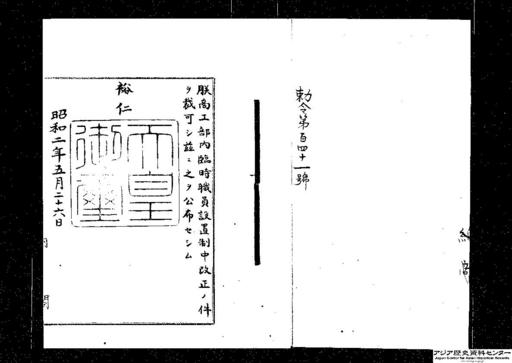 勅令第百四十一號
朕商工部内臨時職員設置制中改正ノ件
ヲ裁可シ茲ニ之ヲ公布セシム
裕仁
天皇御璽
昭和二年五月二十六日
内閣
アジア歴史資料センター
Japan Center for Asian Historical Records